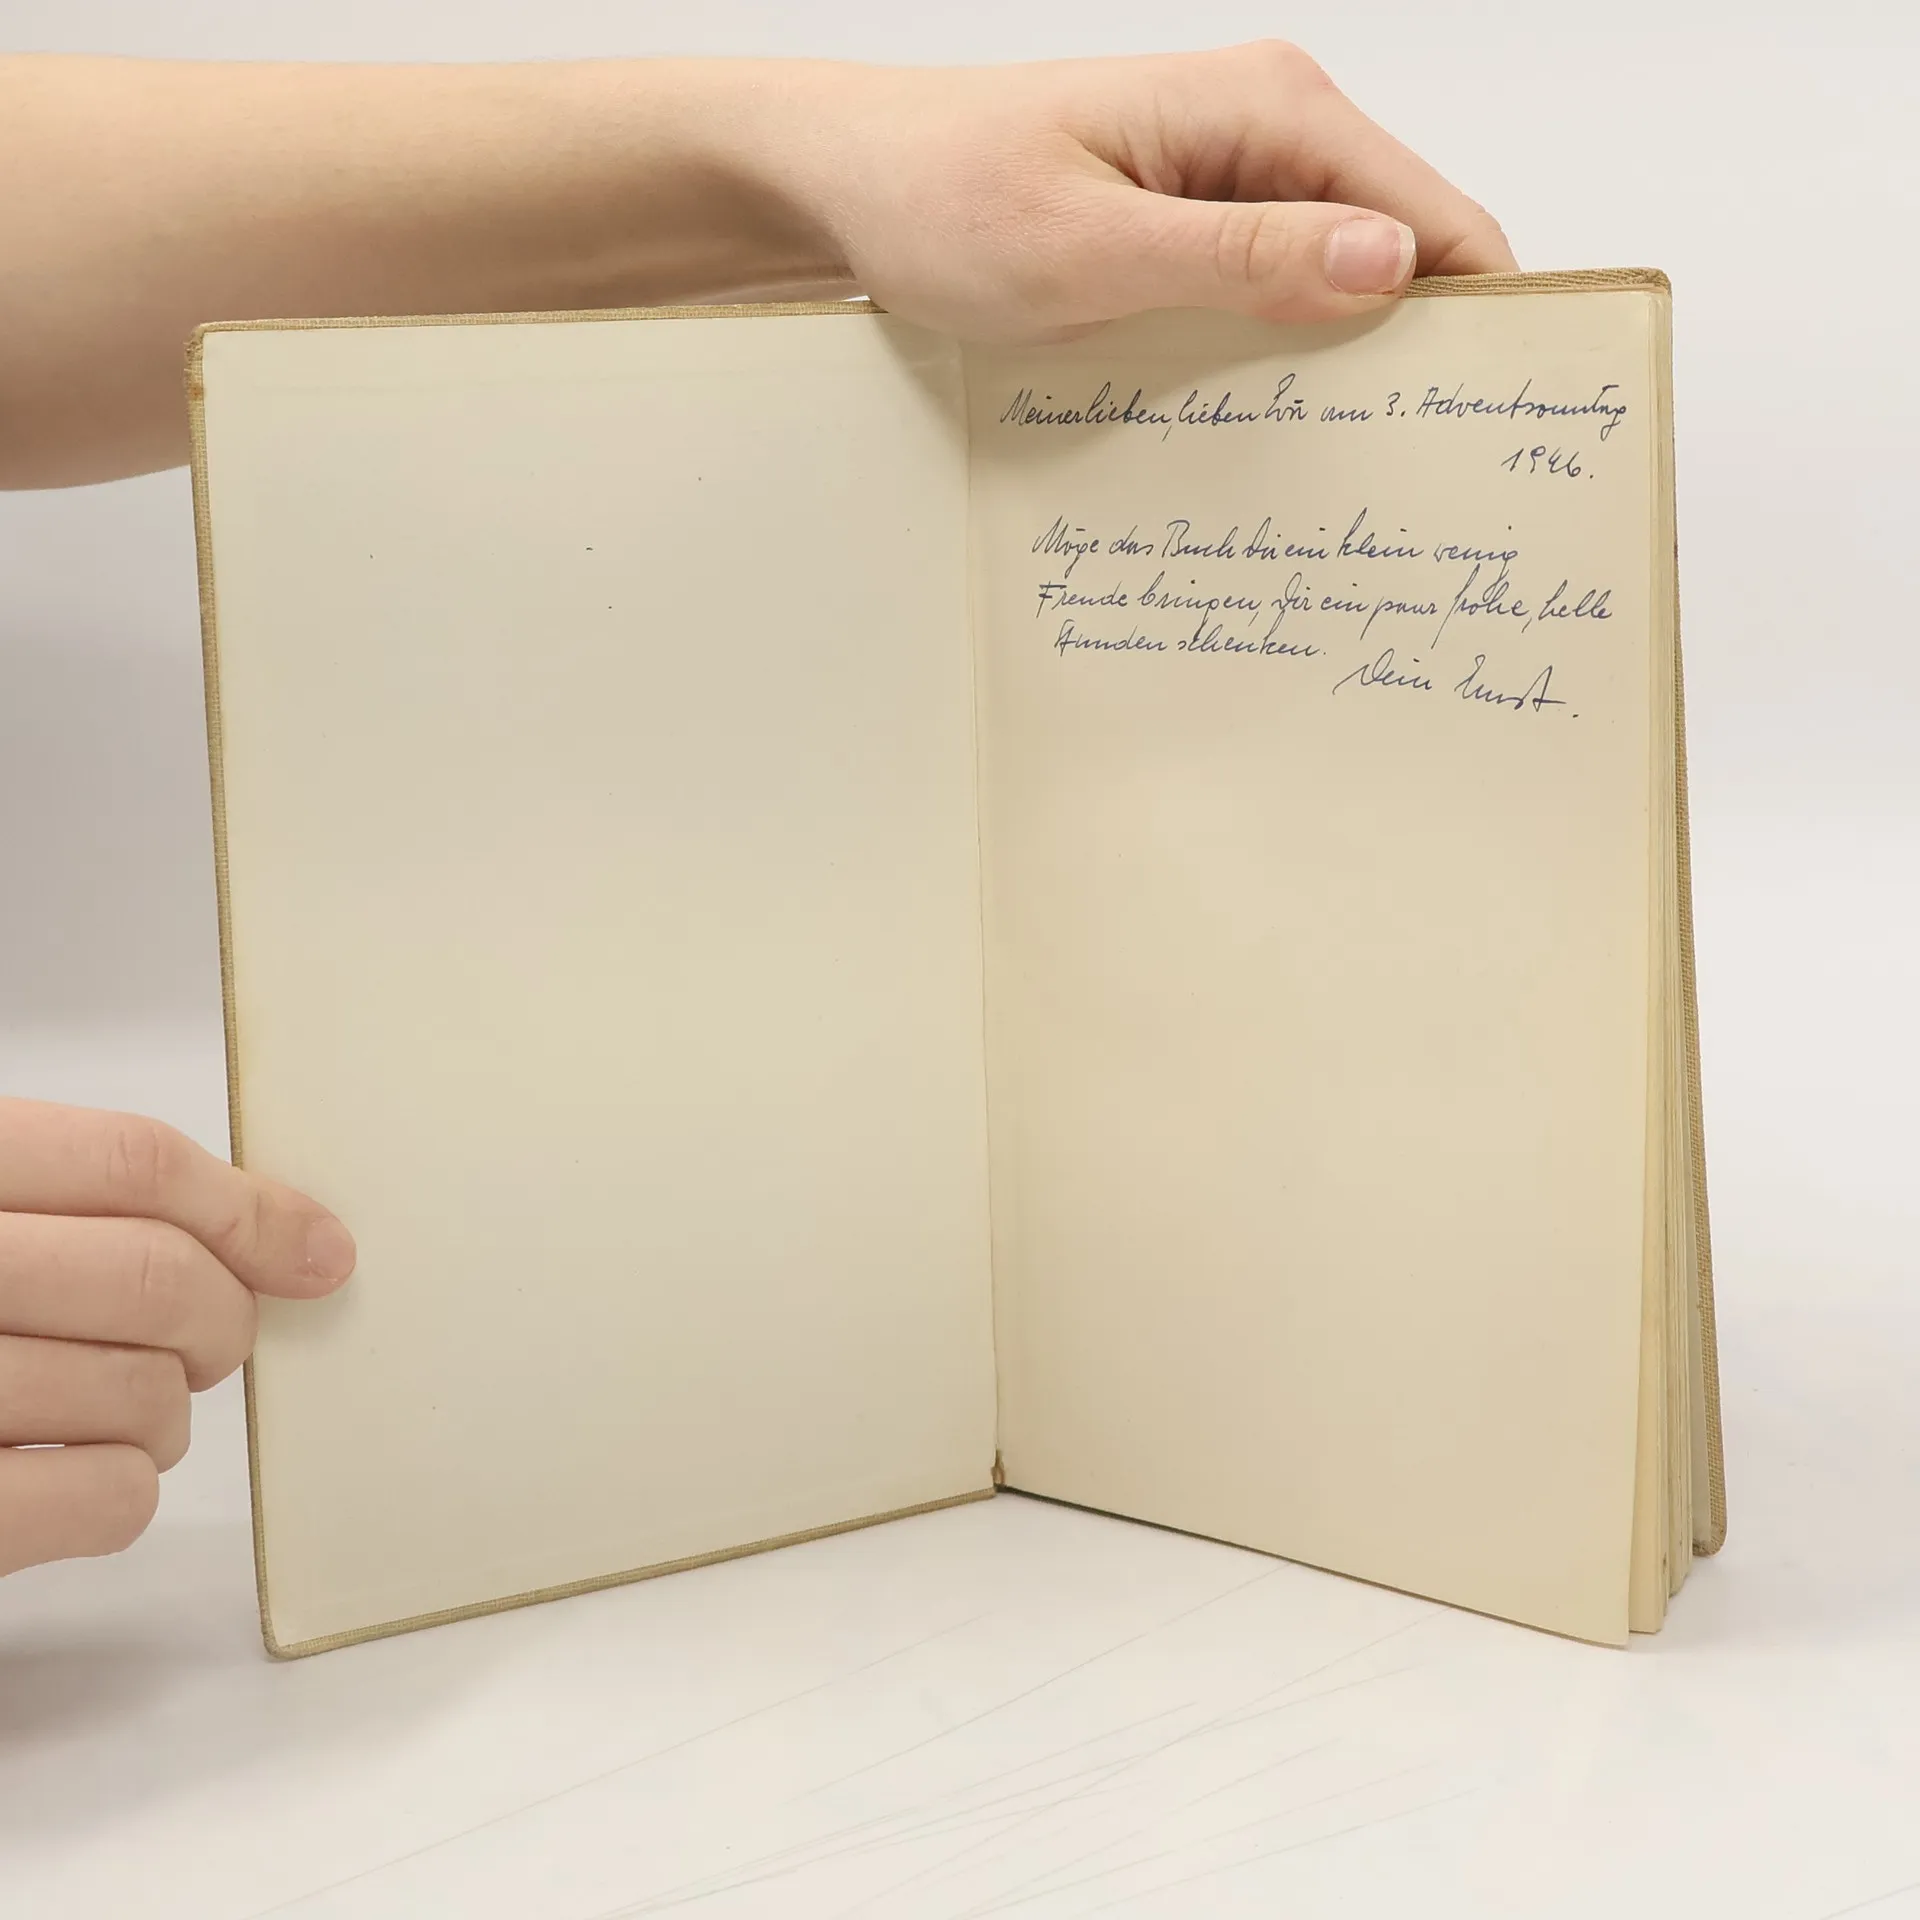 Meiner lieben, lieben am 3. Adventsonntag
1946.
Möge das Buch Dir ein klein wenig
Freude bringen, Dir ein paar frohe, helle
Stunden schenken.
Dein Ernst.